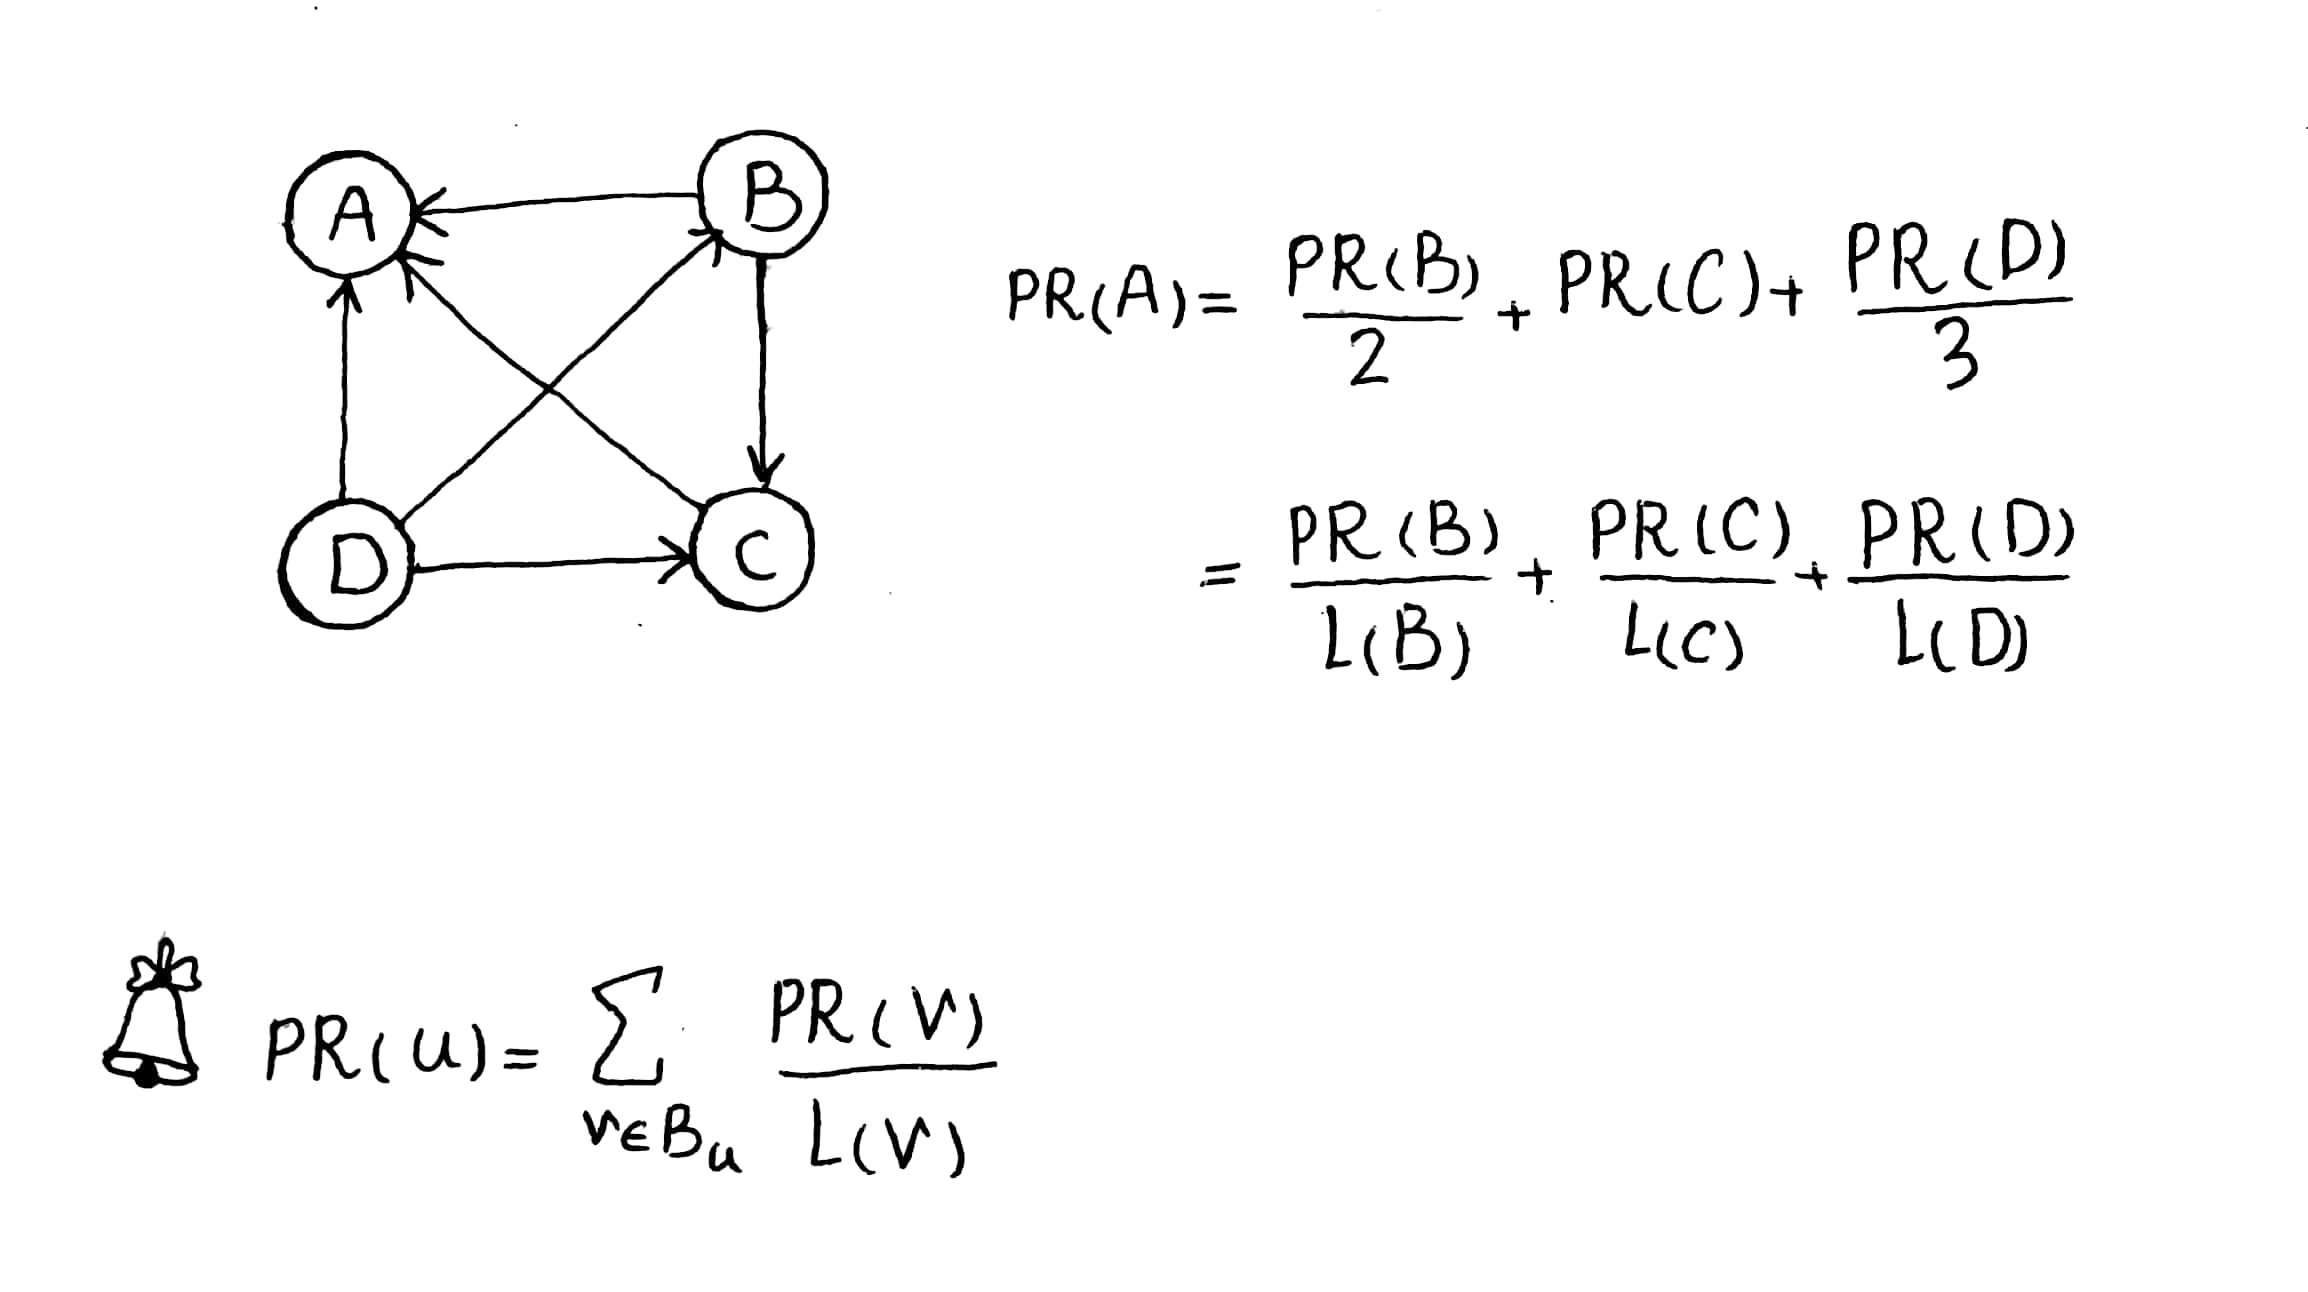 A B
D C
PR(A) = PR(B)/2 + PR(C) + PR(D)/3
= PR(B)/L(B) + PR(C)/L(C) + PR(D)/L(D)
PR(u) = ∑ v∈Bu PR(v)/L(v)